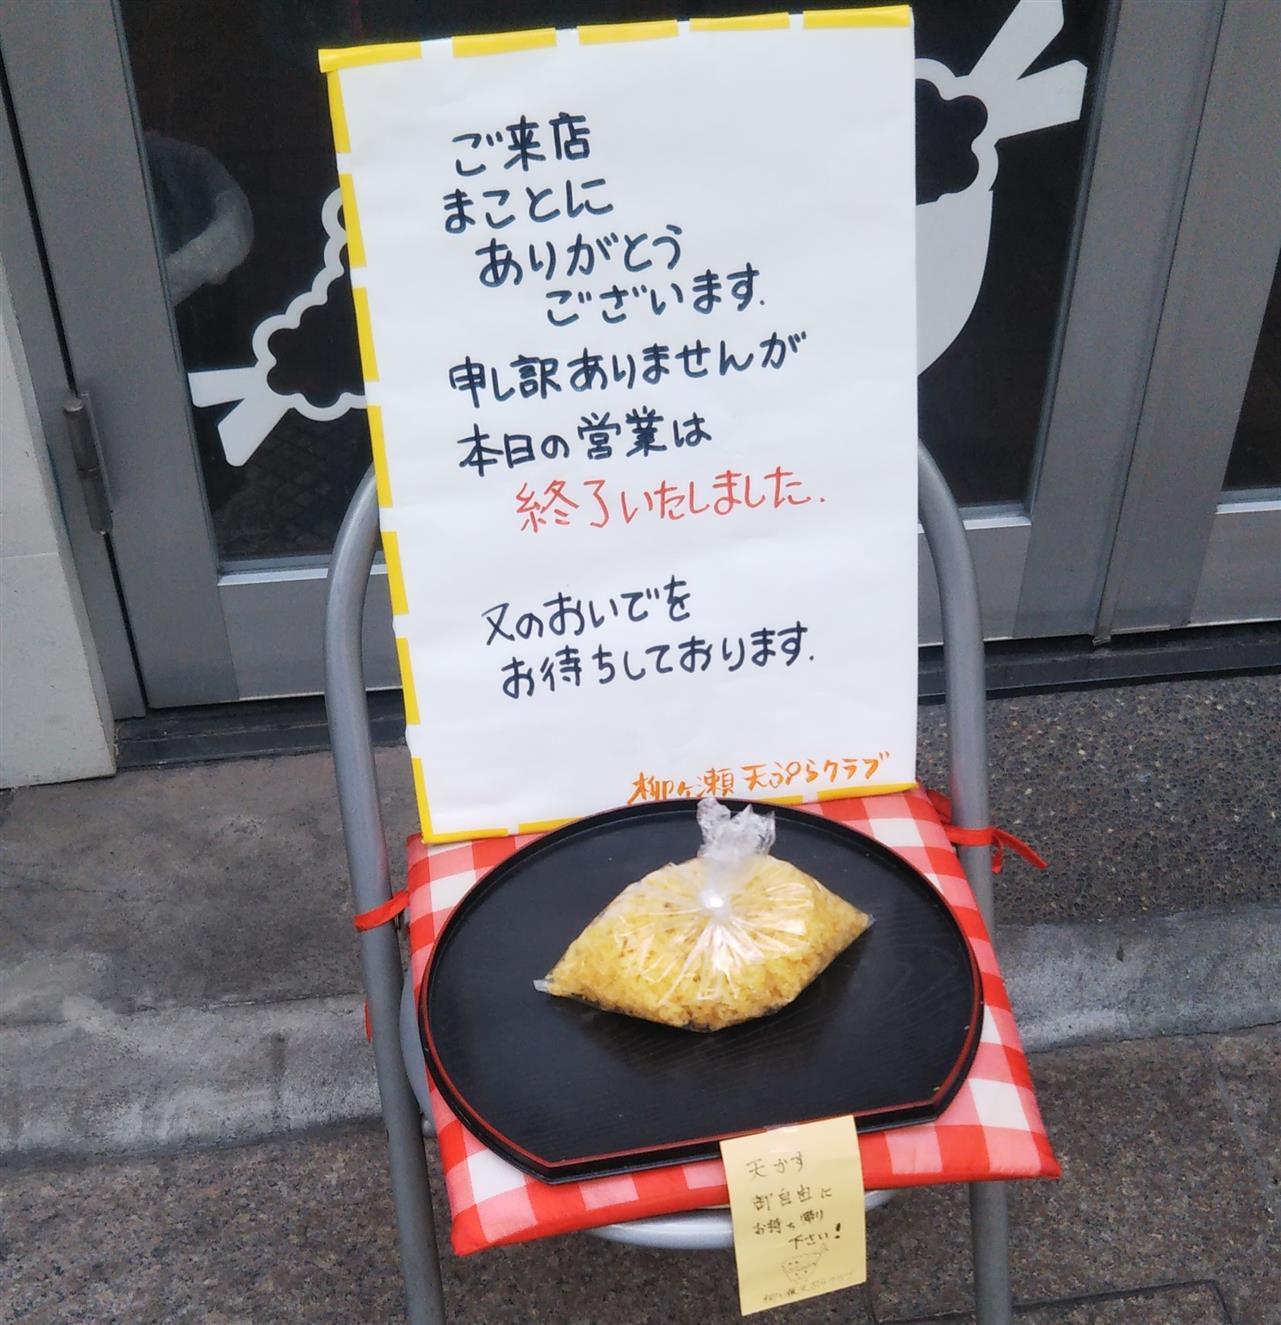 ご来店
まことに
ありがとう
ございます.
申し訳ありませんが
本日の営業は
終了いたしました.
又のおいでを
お待ちしております.
柳ヶ瀬 天ぷらクラブ
天かす
御自由に
お持ち帰り
下さい!
柳ヶ瀬天ぷらクラブ